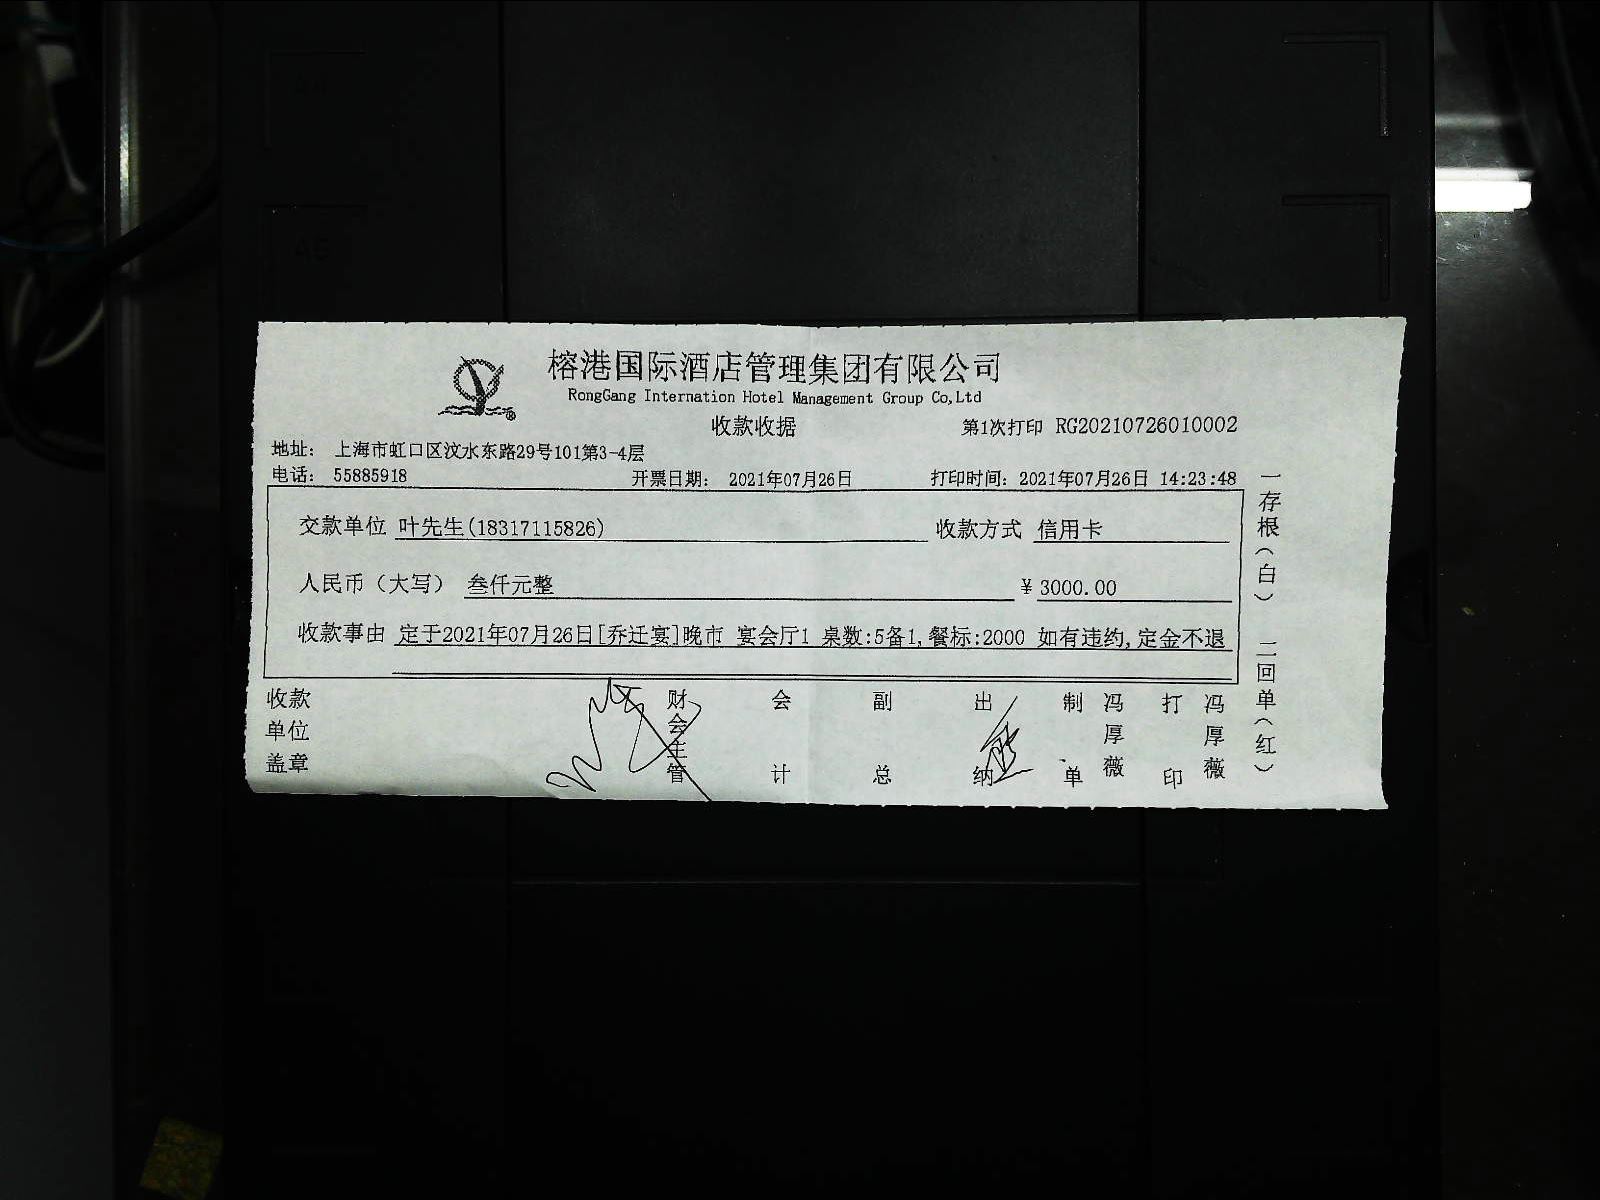 榕港国际酒店管理集团有限公司
RongGang Internation Hotel Management Group Co,Ltd
收款收据
第1次打印 RG20210726010002
地址： 上海市虹口区汶水东路29号101第3-4层
电话： 55885918 开票日期： 2021年07月26日 打印时间：2021年07月26日 14:23:48
交款单位 叶先生(18317115826) 收款方式 信用卡
人民币（大写） 叁仟元整 ¥3000.00
收款事由 定于2021年07月26日[乔迁宴]晚市 宴会厅1 桌数:5备1,餐标:2000 如有违约,定金不退
收款单位盖章
财会主管
会计
副总
出纳
制单
冯厚薇
打印
冯厚薇
一存根（白） 二回单（红）
A5